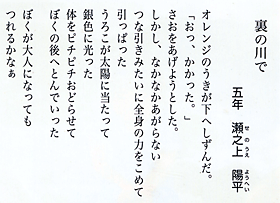 裏の川で
五年　瀬之上　陽平
せのうえ　ようへい
オレンジのうきが下へしずんだ。
「おっ、かかった。」
さおをあげようとした。
しかし、なかなかあがらない
つな引きみたいに全身の力をこめて
引っぱった
うろこが太陽に当たって
銀色に光った
体をピチピチおどらせて
ぼくの後へとんでいった
ぼくが大人になっても
つれるかなぁ